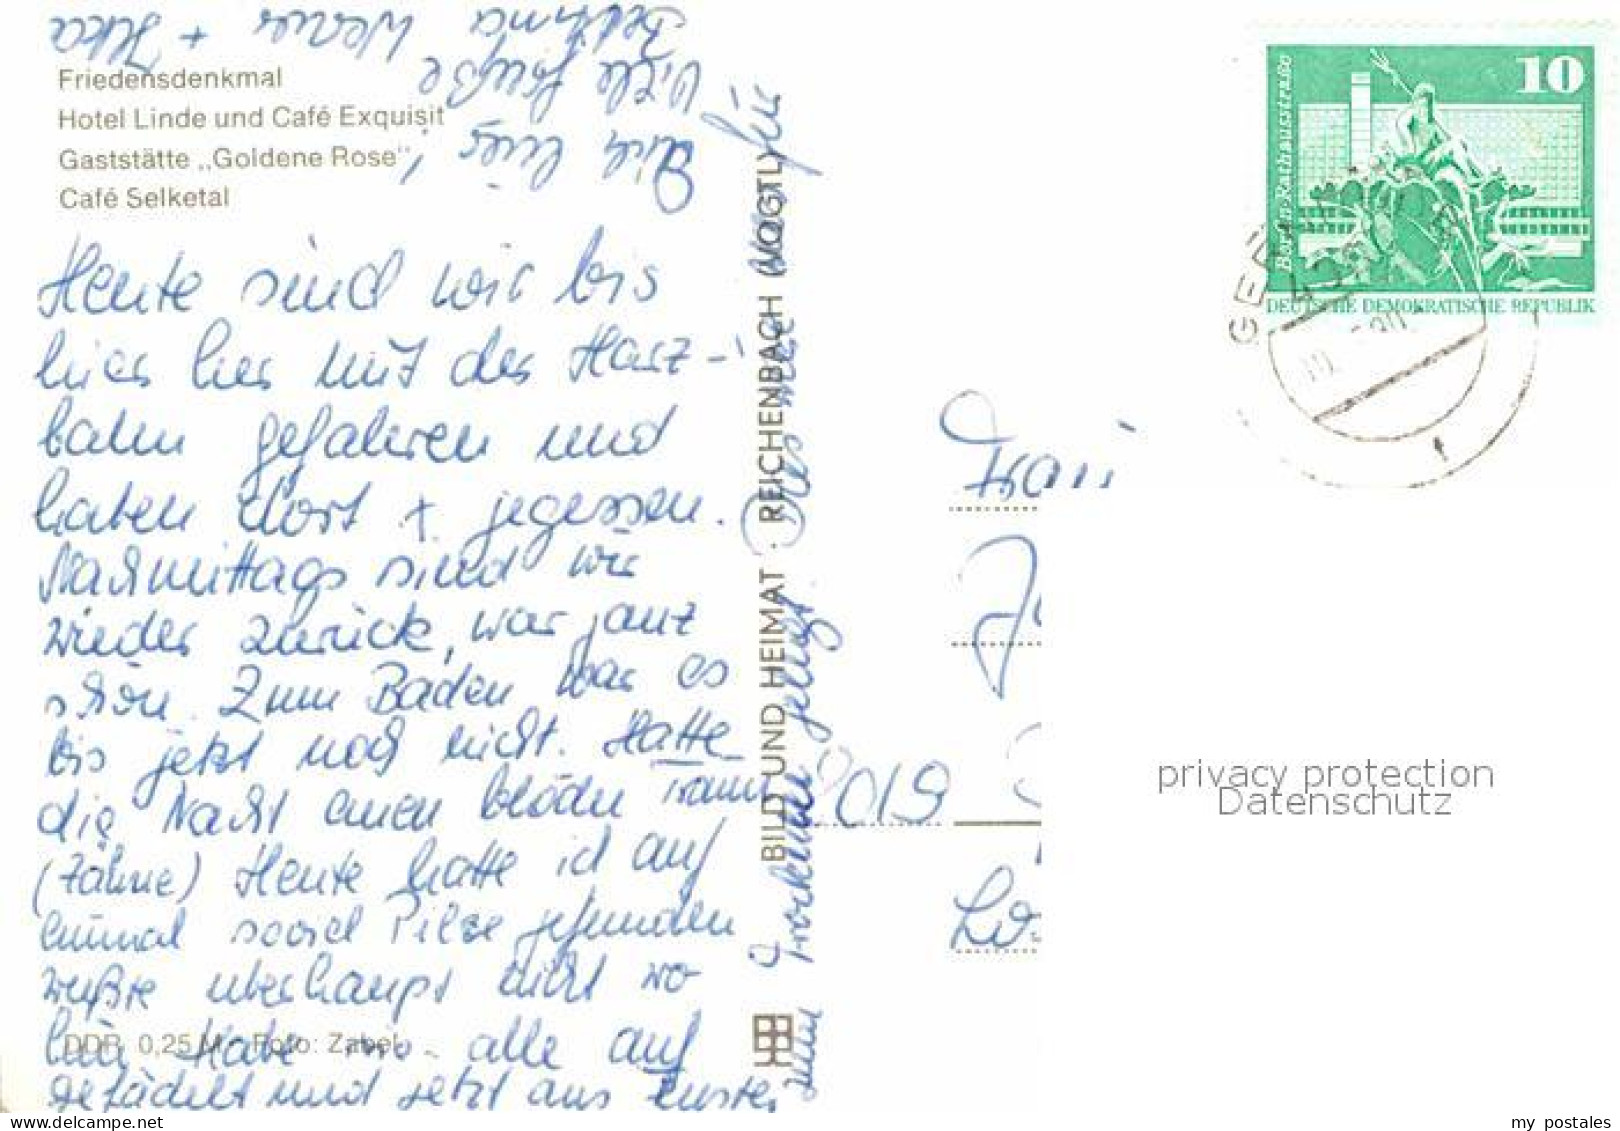 Friedensdenkmal
Hotel Linde und Café Exquisit
Gaststätte „Goldene Rose“
Café Selketal
Heute sind wir bis
hier her mit der Harz-
bahn gefahren und
haben dort + gegessen.
Nachmittags sind wir
wieder zurück, war ganz
schön. Zum Baden war es
bis jetzt noch nicht. Hatte
die Nacht einen blöden Traum
(Zähne) Heute hatte ich auf
einmal soviel Pilze gefunden
wußte überhaupt nicht wo
hin. Habe alle auf
gefädelt und jetzt aus Fenster
zum Trocknen gehängt.
Viele Grüße
Werner + Ilka
DDR 0,25 M Foto: Zabel
BILD UND HEIMAT · REICHENBACH (VOGTL)
10
Berlin-Rathausstraße
DEUTSCHE DEMOKRATISCHE REPUBLIK
Frau
privacy protection
Datenschutz
my postales